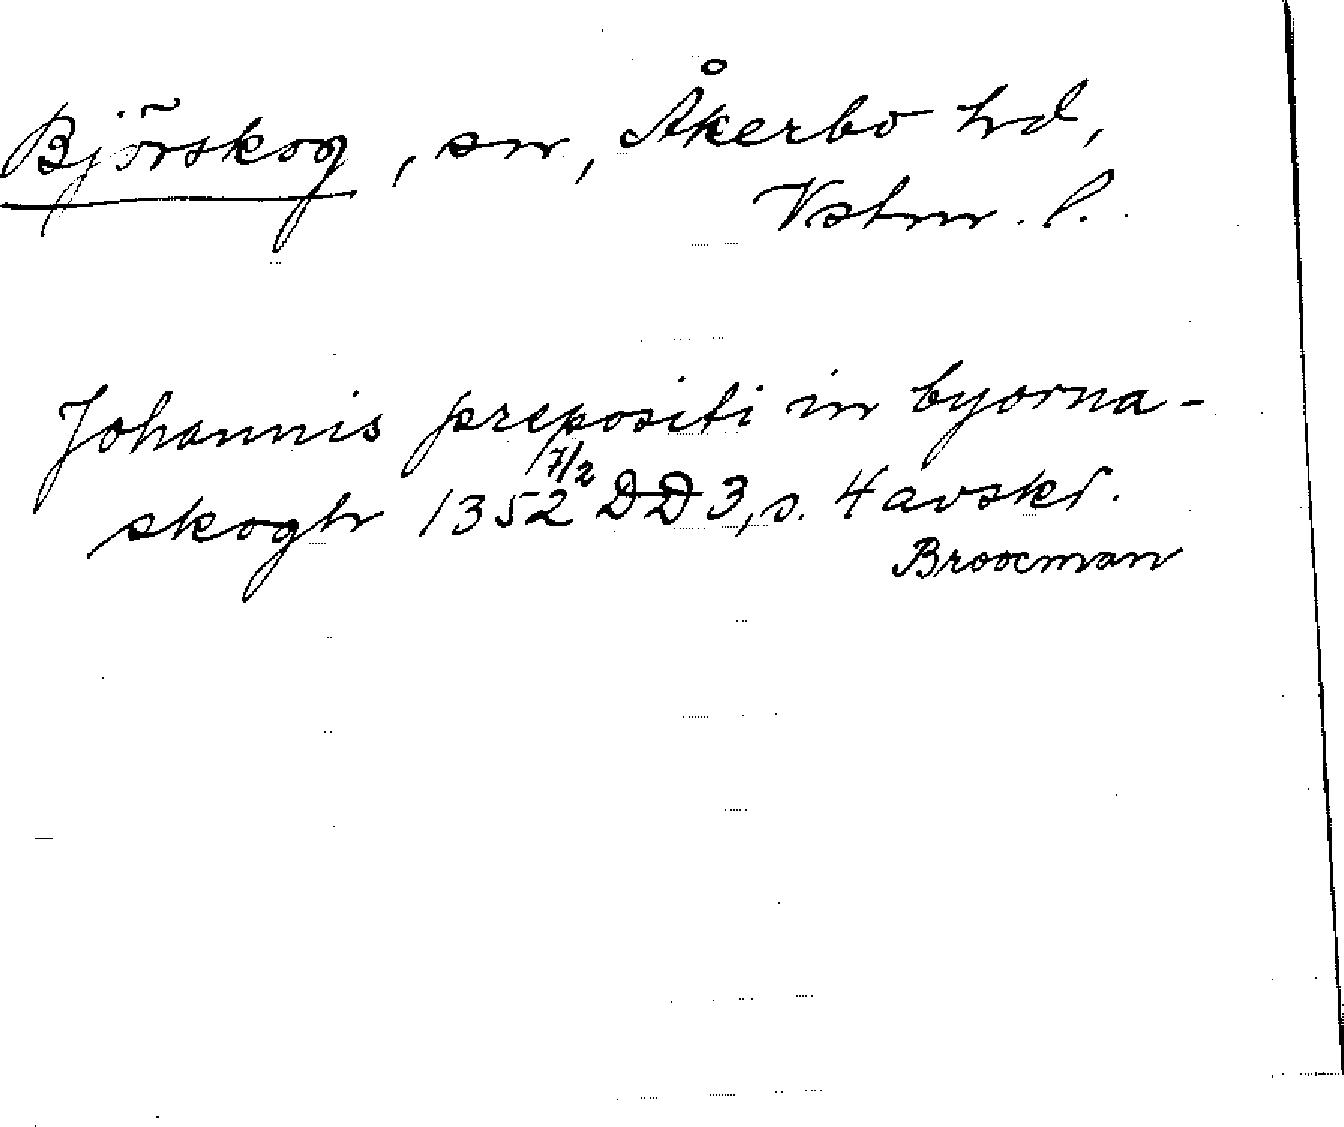 Björskog, sn, Åkerbo hd,
Vstm. l.
Johannis prepositi in byorna-
skogh 1352 7/2 DD 3, s. 4 avskr.
Broocman